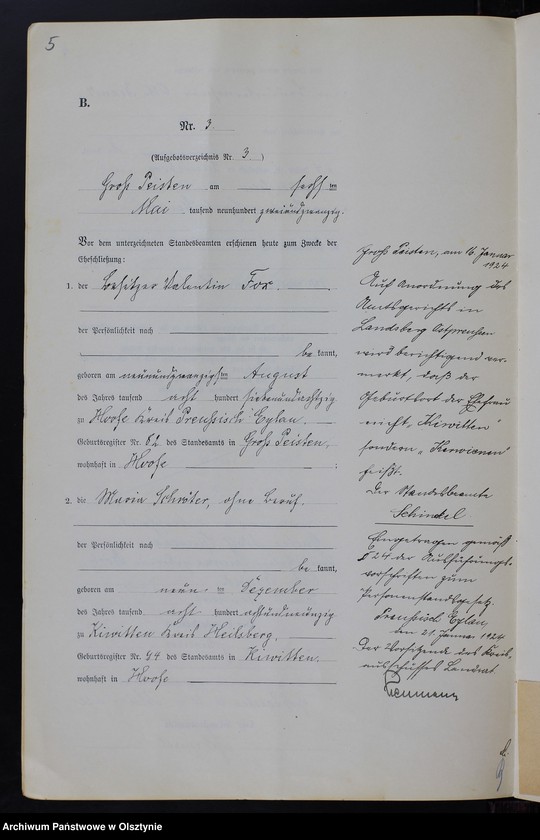 5
B.
Nr. 3.
(Aufgebotsverzeichnis Nr. 3)
Groß Peisten am sechsten
Mai tausend neunhundert zweiundzwanzig.
Vor dem unterzeichneten Standesbeamten erschienen heute zum Zwecke der
Eheschließung:
1. der Besitzer Valentin Fox.
der Persönlichkeit nach
bekannt,
geboren am neunundzwanzigsten August
des Jahres tausend acht hundert siebenundachtzig
zu Hoofe Kreis Preußisch Eylau.
Geburtsregister Nr. 82 des Standesamts in Groß Peisten,
wohnhaft in Hoofe;
2. die Maria Schröter, ohne Beruf.
der Persönlichkeit nach
bekannt,
geboren am neunten Dezember
des Jahres tausend acht hundert achtundneunzig
zu Kiwitten Kreis Heilsberg,
Geburtsregister Nr. 44 des Standesamts in Kiwitten,
wohnhaft in Hoofe
Groß Peisten, am 16. Januar
1924
Auf Anordnung des
Amtsgerichts in
Landsberg Ostpreußen
wird berichtigend ver-
merkt, daß der
Geburtsort der Ehefrau
nicht „Kiwitten"
sondern „Kerwienen"
heißt.
Der Standesbeamte
Schindel
Eingetragen gemäß
§ 24 der Ausführungs-
vorschriften zum
Personenstandsgesetz.
Preußisch Eylau,
den 21. Januar 1924
Der Vorsitzende des Kreis-
ausschusses Landrat
Archiwum Państwowe w Olsztynie